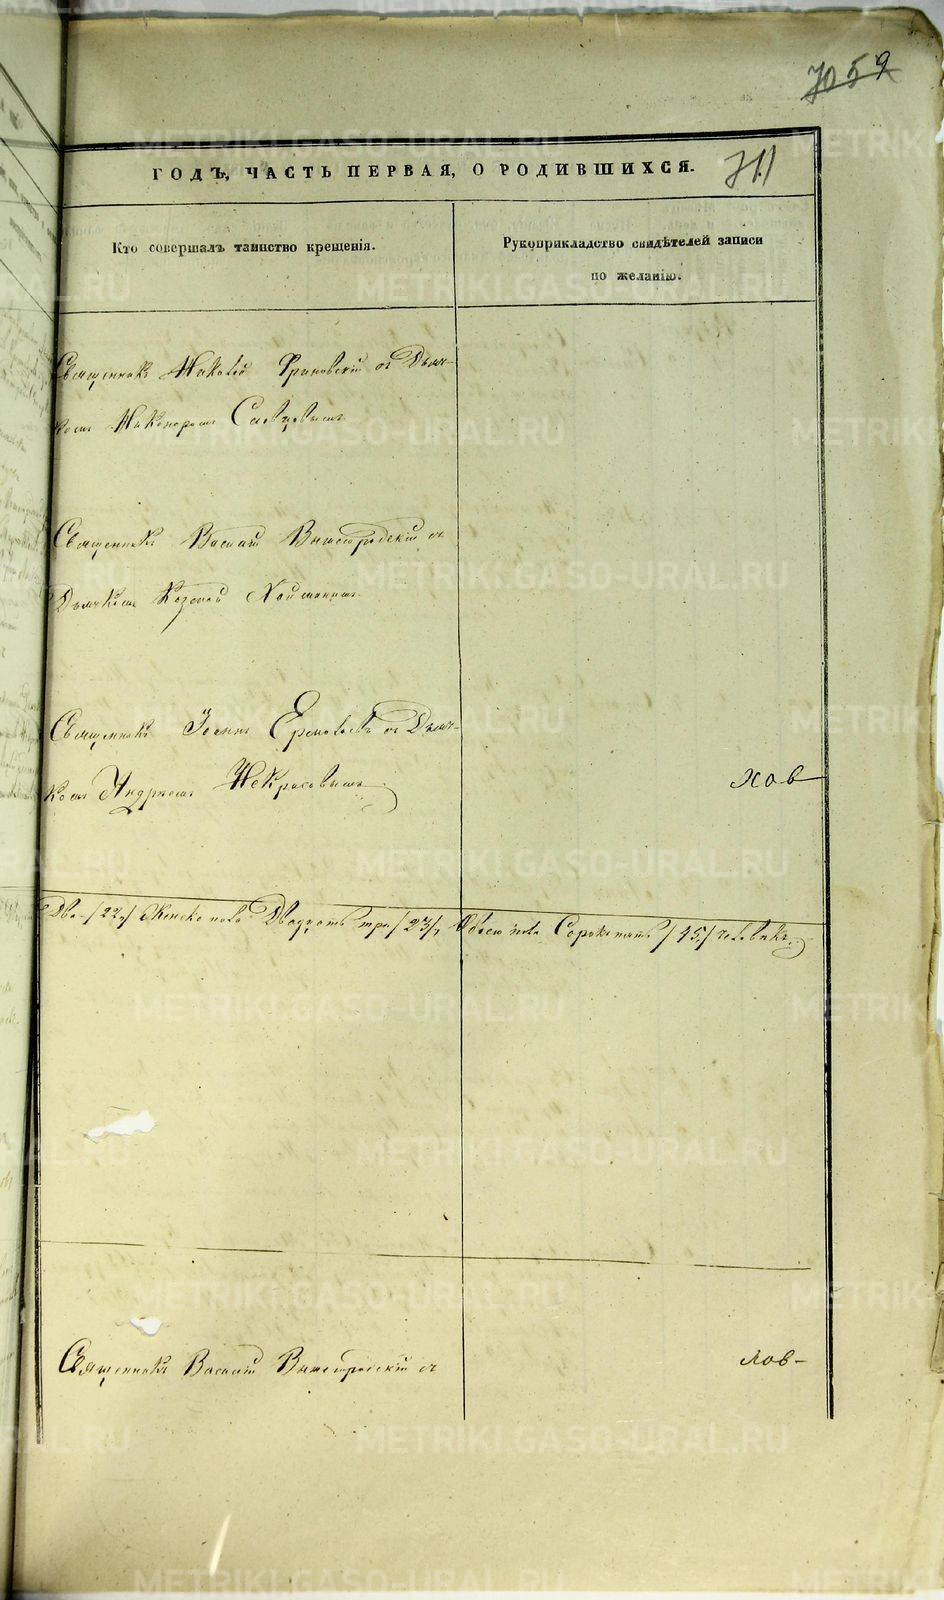 7059
711
ГОДЪ, ЧАСТЬ ПЕРВАЯ, О РОДИВШИХСЯ.
Кто совершалъ таинство крещенія.
Рукоприкладство свидѣтелей записи
по желанію.
Священникъ Николай съ Дьяч-
комъ Никаноромъ
Священникъ Василій Вышегородскій съ
Дьячкомъ Козмой
Священникъ Іоаннъ Ермолаевъ съ Дьяч-
комъ Андреемъ Некрасовымъ
хов
Два /22,/ Женска пола Двадцать три /23/, Обоего пола Сорокъ пять /45,/ человѣкъ.
Священникъ Василій Вышегородскій съ
лов-
METRIKI.GASO-URAL.RU